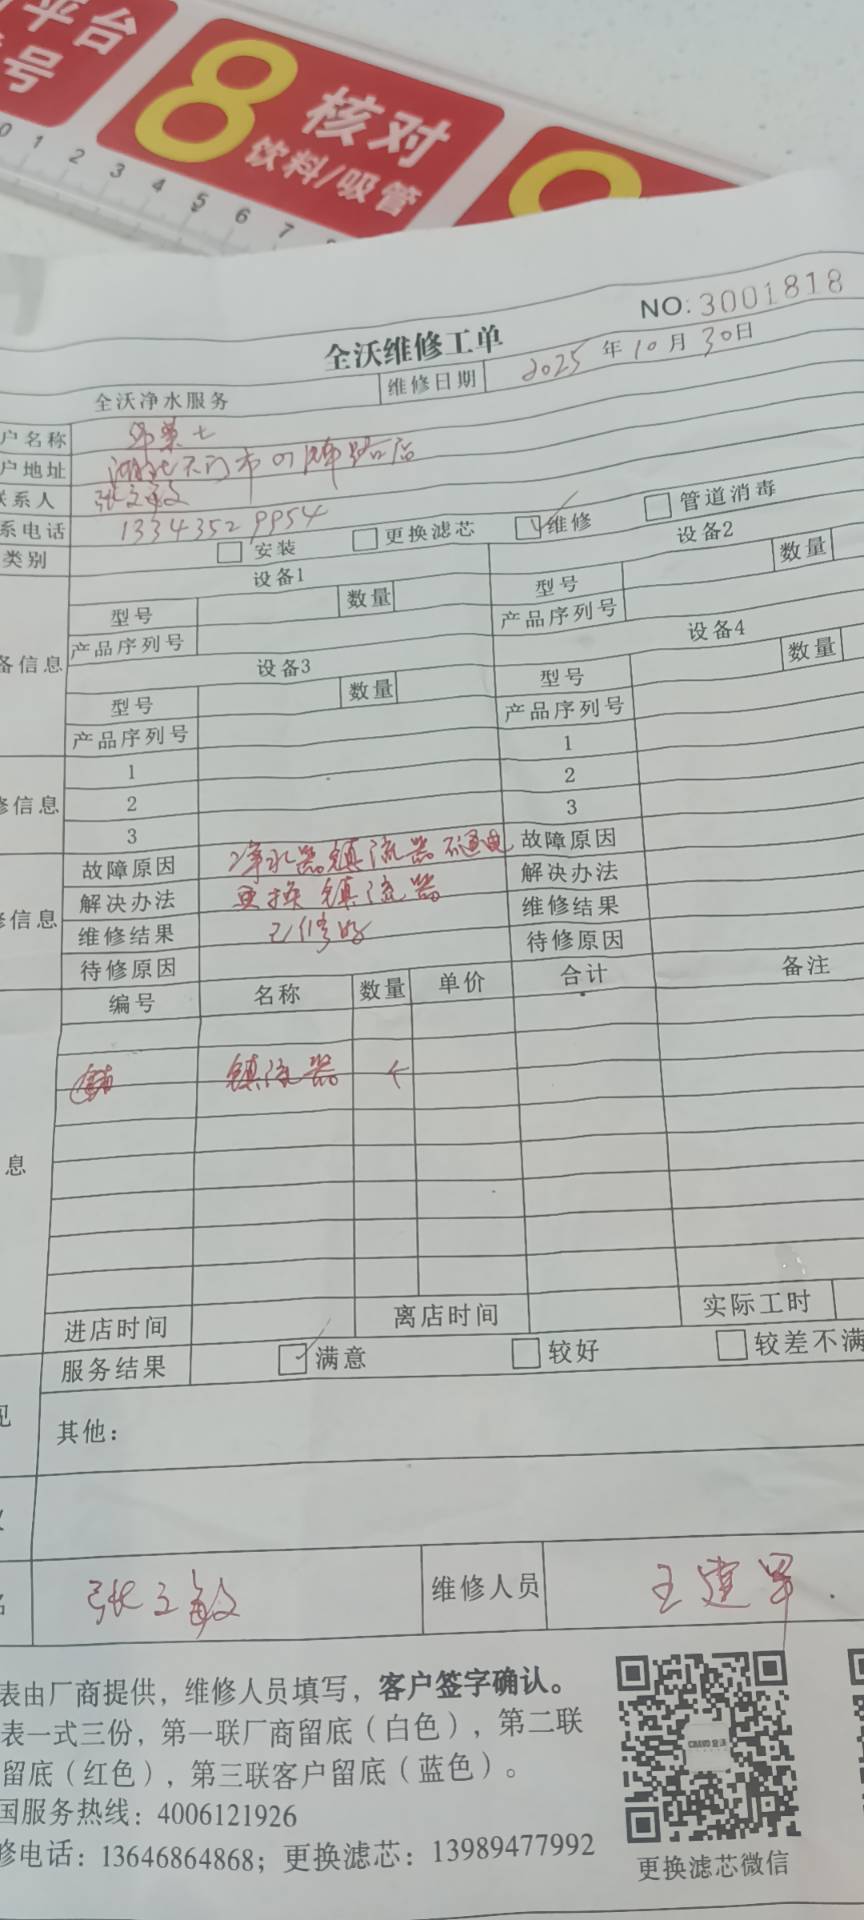 平台
号
8 核对
饮料/吸管
0 1 2 3 4 5 6 7
NO:3001818
全沃维修工单
全沃净水服务 维修日期 2025年10月30日
户名称 华莱士
户地址 湖北天门市 牌路店
联系人 张立敏
系电话 13343529954
类别 安装 更换滤芯 维修 管道消毒
设备1 设备2
型号 数量 型号 数量
产品序列号 产品序列号
备信息 设备3 设备4
型号 数量 型号 数量
产品序列号 产品序列号
1 1
修信息 2 2
3 3
故障原因 净水器镇流器不通电 故障原因
解决办法 更换镇流器 解决办法
修信息 维修结果 已修好 维修结果
待修原因 待修原因
编号 名称 数量 单价 合计 备注
镇流器 个
息
进店时间 离店时间 实际工时
服务结果 满意 较好 较差不满
见
其他：
名 张立敏 维修人员 王建军
表由厂商提供，维修人员填写，客户签字确认。
表一式三份，第一联厂商留底（白色），第二联
留底（红色），第三联客户留底（蓝色）。
国服务热线：4006121926
修电话：13646864868；更换滤芯：13989477992
更换滤芯微信